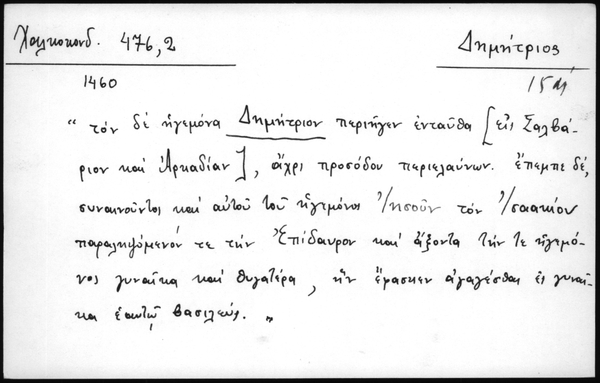 Χαλκοκονδ. 476,2
Δημήτριος
1460
"τὸν δὲ ἡγεμόνα Δημήτριον περιῆγεν ἐνταῦθα [εἰς Σαλβά-
ριον καὶ Ἀρκαδίαν], ἄχρι προσόδου περιελαύνων. ἔπεμπε δέ,
συναινοῦντος καὶ αὐτοῦ τοῦ ἡγεμόνος Ἰησοῦν τὸν Ἰσαακίου
παραληψόμενόν τε τὴν Ἐπίδαυρον καὶ ἄξοντα τήν τε ἡγεμό-
νος γυναῖκα καὶ θυγατέρα, ἣν ἔφασκεν ἀγαγέσθαι ἐς γυναῖ-
κα ἑαυτῷ βασιλεύς."